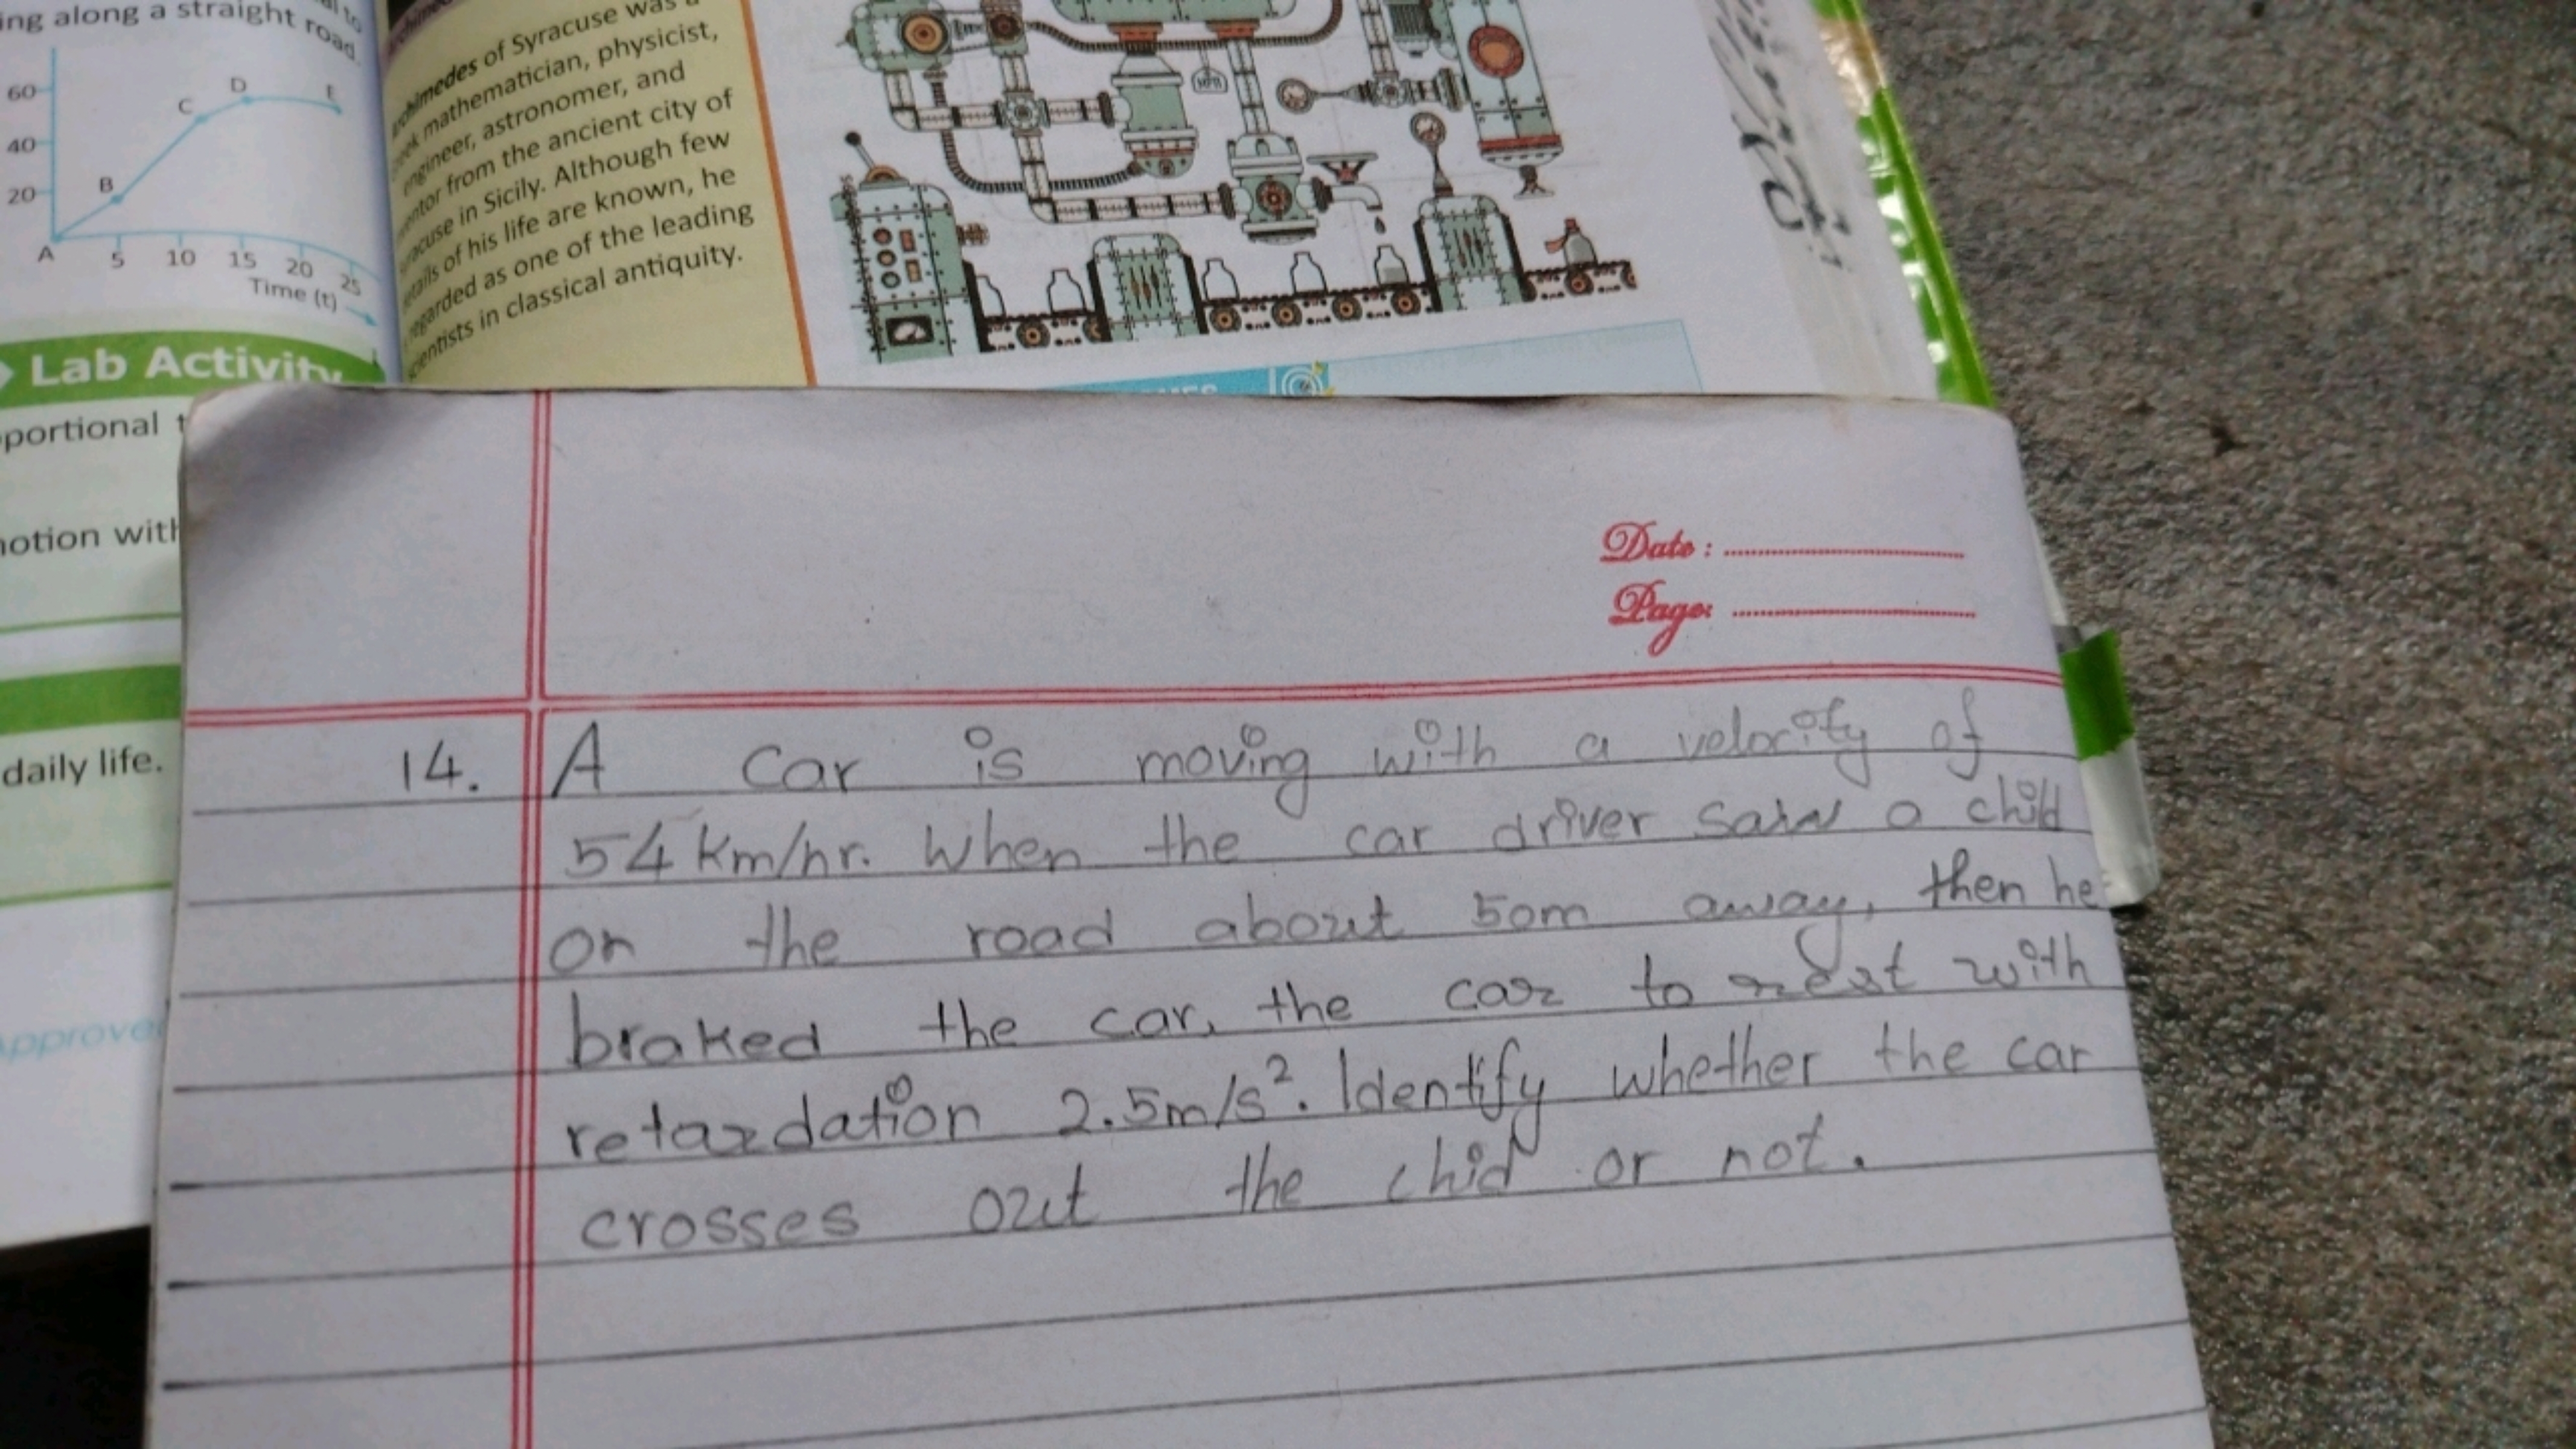 ing along a straight road.
60
40
20
A
B
C
D
E
5 10 15 20 25
Time (t)
Lab Activity
portional
motion with
daily life.
Approve
of Syracuse was a
mathematician, physicist,
engineer, astronomer, and
from the ancient city of
in Sicily. Although few
of his life are known, he
regarded as one of the leading
scientists in classical antiquity.
Date :
Page:
14. A car is moving with a velocity of
54 km/hr. When the car driver saw a child
on the road about 50m away, then he
braked the car, the car to rest with
retardation 2.5m/s². Identify whether the car
crosses out the chid or not.